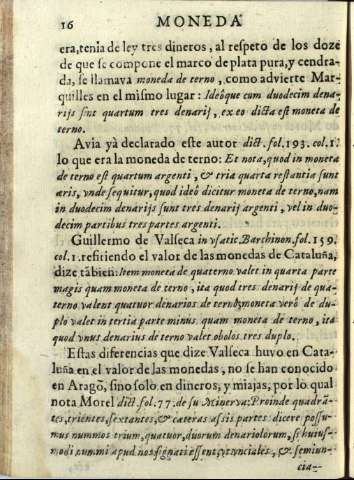 16 MONEDA
era, tenia de ley tres dineros, al respeto de los doze
de que se compone el marco de plata pura, y cendra-
da, se llamava moneda de terno, como advierte Mar-
quilles en el mismo lugar: Ideòque cum duodecim dena-
rijs sint quartum tres denarij, ex eo dicta est moneta de
terno.
Avia yà declarado este autor dict. fol. 193. col. 1.
lo que era la moneda de terno: Et nota, quod in moneta
de terno est quartum argenti, & tria quarta restantia sunt
æris, vnde sequitur, quod ideò dicitur moneta de terno, nam
in duodecim denarijs sunt tres denarij argenti, vel in duo-
decim partibus tres partes argenti.
Guillermo de Valseca in vsatic. Barchinon. fol. 159.
col. 1. refiriendo el valor de las monedas de Cataluña,
dize tãbien: Item moneta de quaterno valet in quarta parte
magis quam moneta de terno, ita quod tres denarij de qua-
terno valent quatuor denarios de terno, moneta verò de du-
plo valet in tertia parte minus quam moneta de terno, ita
quod vnus denarius de terno valet obolos tres duplo.
Estas diferencias que dize Valseca huvo en Cata-
luña en el valor de las monedas, no se han conocido
en Aragõ, sino solo en dineros, y miajas, por lo qual
nota Morel dict. fol. 77. de su Minerva: Proinde quadrã-
tes, trientes, sextantes, & cæteras assis partes dicere possu-
mus nummos trium, quatuor, duorum denariolorum, si huius-
modi nummi apud nos signati essent, vt vnciales, & semiun-
cia-